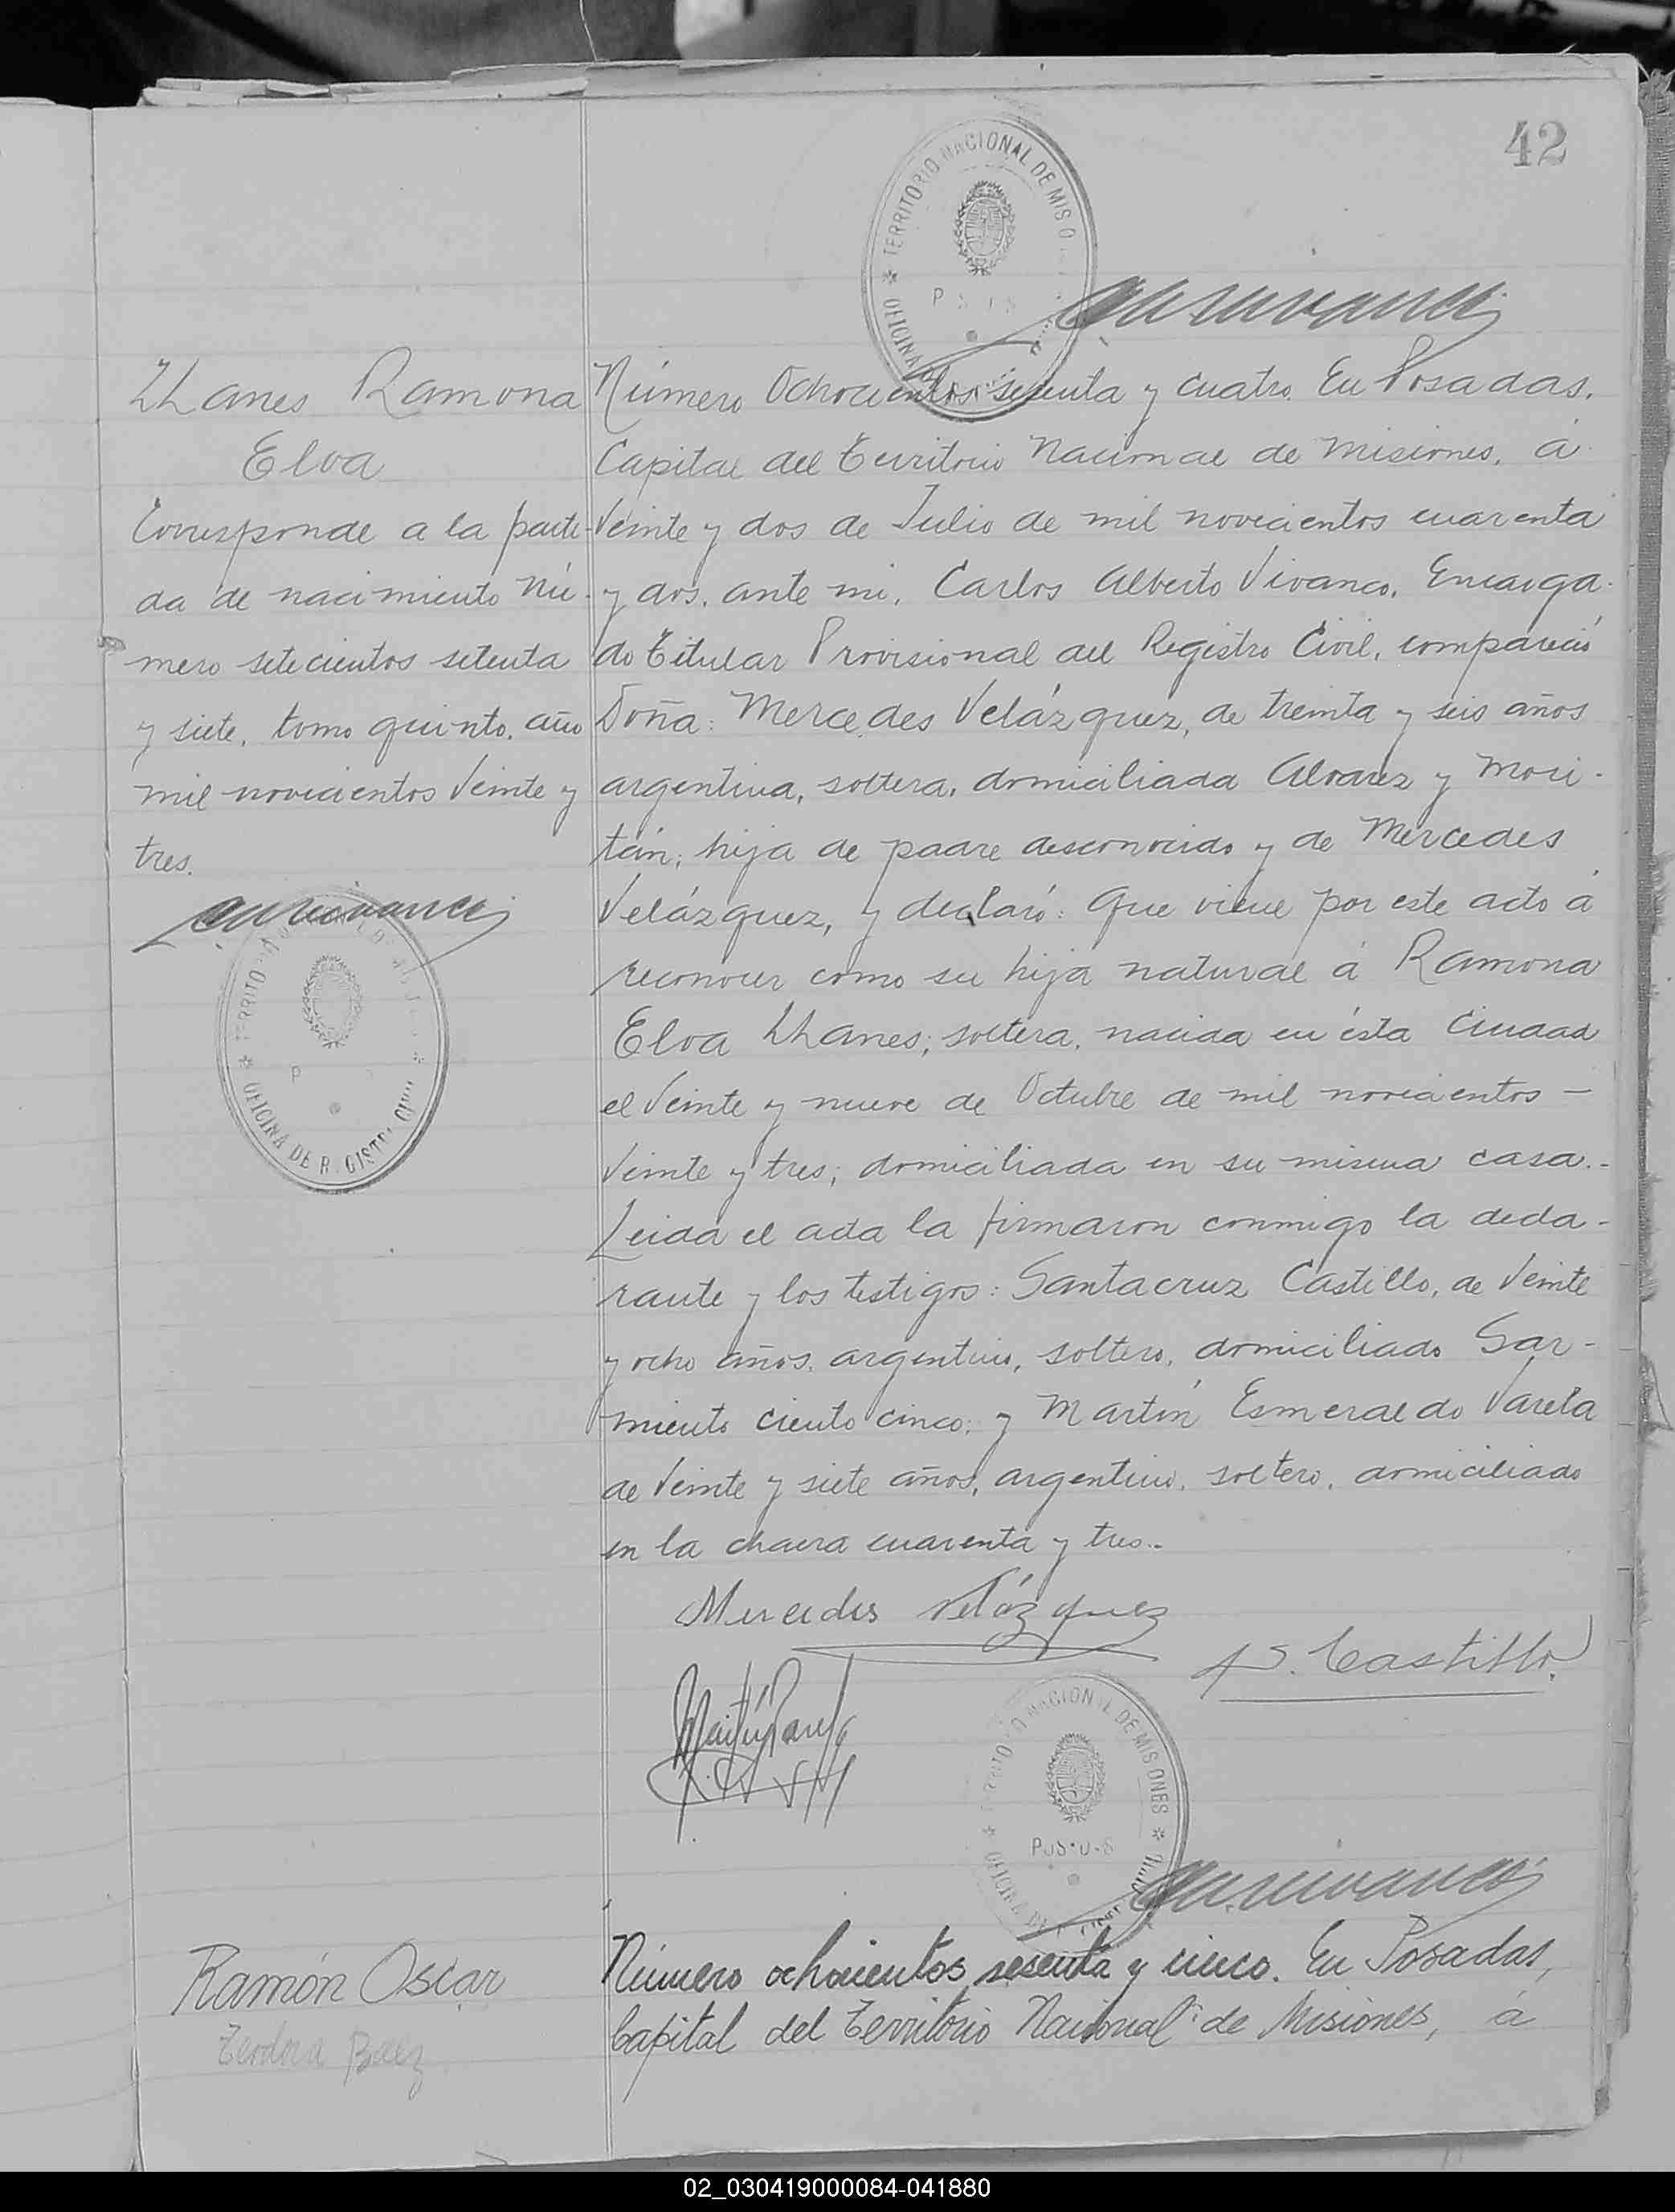 42
TERRITORIO NACIONAL DE MISIO
OFICINA
Llanes Ramona
Elva
Corresponde a la parti-
da de nacimiento Nú-
mero setecientos setenta
y siete, tomo quinto, año
mil novecientos veinte y
tres.
TERRITO
OFICINA DE R.GISTR CIVIL
Número Ochocientos sesenta y cuatro. En Posadas,
Capital del Territorio Nacional de Misiones, á
veinte y dos de Julio de mil novecientos cuarenta
y dos, ante mi, Carlos Alberto Vivanco, Encarga-
do Titular Provisional del Registro Civil, compareció
Doña: Mercedes Velázquez, de treinta y seis años
argentina, soltera, domiciliada Alvarez y Mori-
tán; hija de padre desconocido y de Mercedes
Velázquez, y declaró: Que viene por este acto á
reconocer como su hija natural á Ramona
Elva Llanes; soltera, nacida en ésta Ciudad
el veinte y nueve de Octubre de mil novecientos —
veinte y tres; domiciliada en su misma casa.-
Leida el acta la firmaron conmigo la decla-
rante y los testigos: Santacruz Castillo, de veinte
y ocho años, argentino, soltero, domiciliado Sar-
miento ciento cinco; y Martín Esmeraldo Varela
de veinte y siete años, argentino, soltero, domiciliado
en la chacra cuarenta y tres.-
Mercedes Velázquez
S. Castillo.
Martín Varela
NACIONAL DE MISIONES
Ramón Oscar
Teodora Baez
Número ochocientos sesenta y cinco. En Posadas,
Capital del Territorio Nacional de Misiones, á
02_030419000084-041880